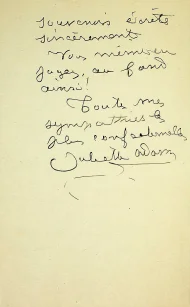 souvenirs écrits
sincèrement
Vous
jugez, au fond
ainsi!
Toute mes
sympathies les
plus confraternelles
Juliette Adam